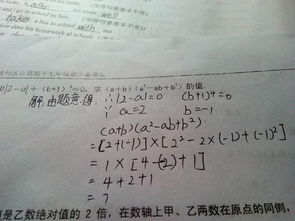 and I go to school by bus. well
takes a bus to school.
doer his homework at school.
|2-a| + (b+1)⁴=0, 求 (a+b)(a²-ab+b²) 的值.
解:由题意得: ∴|2-a|=0 (b+1)⁴=0
∴ a=2 b=-1
(a+b)(a²-ab+b²)
=[2+(-1)]×[2²-2×(-1)+(-1)²]
=1×[4-(-2)+1]
=4+2+1
=7
是乙数绝对值的 2 倍,在数轴上甲、乙两数在原点的同侧,